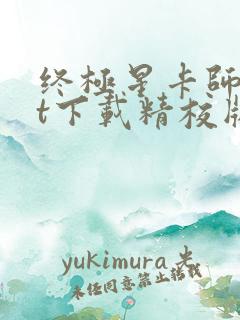 终極星卡師
t下載精校版
yukimura 著
未经同意禁止转载